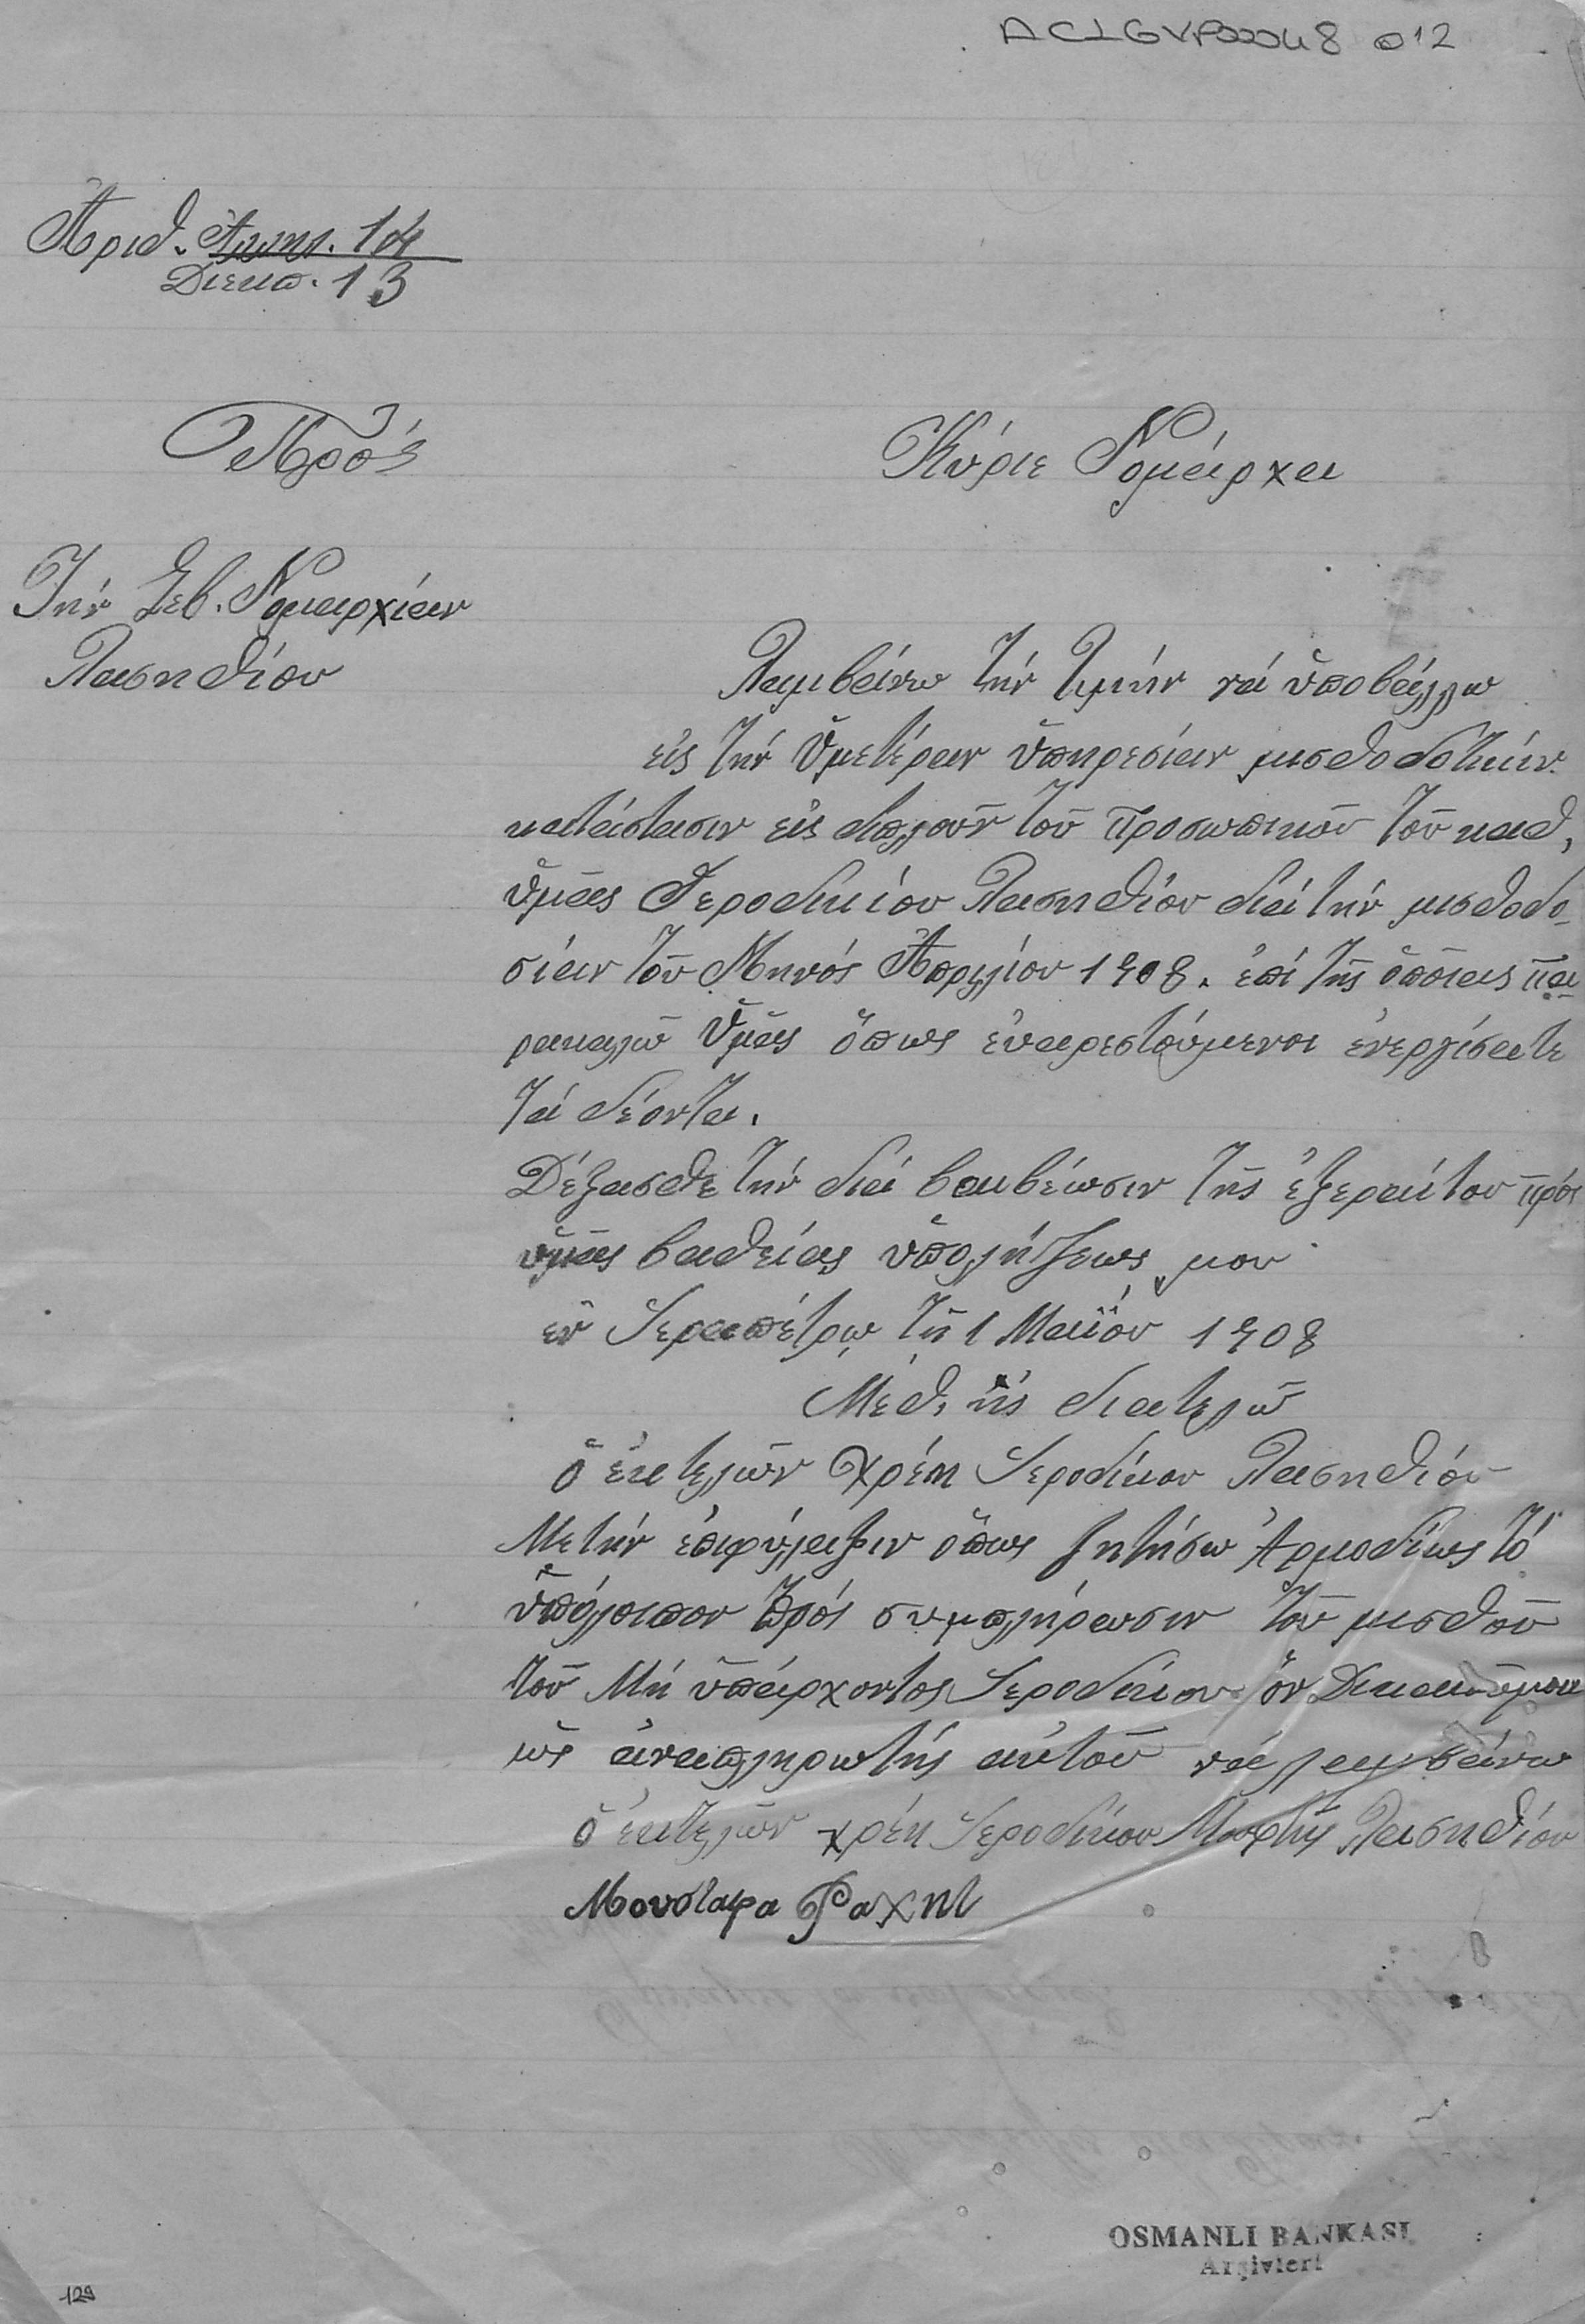 ACLGVP00048 012
Ἀριθ. Πρωτ. 14
Διεκπ. 13
Πρός
Τήν Σεβ. Νομαρχίαν
Λασηθίου
Κύριε Νομάρχα
Λαμβάνω τήν τιμήν νά ὑποβάλλω
εἰς τήν Ὑμετέραν ὑπηρεσίαν μισθοδοτικήν
κατάστασιν εἰς διπλοῦν τοῦ προσωπικοῦ τοῦ καθ,
ὑμᾶς Ἱεροδικίου Λασηθίου διά τήν μισθοδο-
σίαν τοῦ Μηνός Ἀπριλίου 1908. ἐπί τῆς ὁποίας πα-
ρακαλῶ Ὑμᾶς ὅπως εὐαρεστούμενοι ἐνεργήσατε
τά δέοντα.
Δέξασθε τήν διά βαιβέωσιν τῆς ἐξεραίτου πρός
ὑμᾶς βαθείας ὑπολήψεως μου
ἐν Ἱεραπέτρᾳ τῇ 1 Μαΐου 1908
Μεθ, ἧς διατελῶ
ὁ ἐκτελῶν χρέη Ἱεροδίκου Λασηθίου
Μετήν ἐπιφύλαξιν ὅπως ζητήσω Ἁρμοδίως τό
ὑπόλοιπον πρός συμπλήρωσιν τοῦ μισθοῦ
τοῦ Μή ὑπάρχοντος Ἱεροδίκου ὅν Δικαιοῦμαι
ὡς ἀναπληρωτής αὐτοῦ νά λαμβάνω
ὁ ἐκτελῶν χρέη Ἱεροδίκου Μουφτῆς Λασηθίου
Μουσταφα Ραχμτ
OSMANLI BANKASI
Arşivleri
129